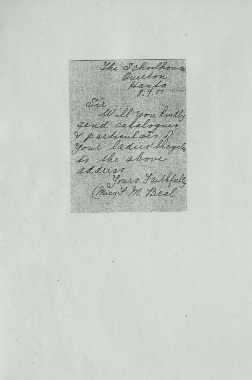 The Schoolhouse
Overton
Hants
Sir
Will you kindly
send catalogues
& particulars of
your ladies bicycles
to the above
address
Yours faithfully
(Miss) F. M. Beal